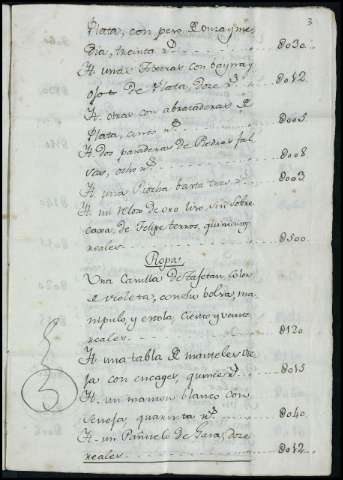 3
Plata, con pero de onza y me
dia, treinta r.s 8030
It. unas Tixeras con vayna y
ojos de Plata, doze r.s 8012
It. otras con abrazaderas de
Plata, cinco r.s 8005
It. dos paraderas de Piedras fal
sas, ocho r.s 8008
It. una Piocha basta tres r.s 8003
It. un relox de oro liso, sin sobre
caxa, de Felipe terros, quinientos
reales 8500
Ropa
Una Casulla de Tafetan, color
de violeta, con su bolsa, ma
nipulo, y estola, Ciento y veinte
reales 8120
It. una tabla de manteles vie
ja con encages, quince r.s 8015
It. un manton blanco con
cenefa quarenta r.s 8040
It. un Pañuelo de Gasa, doze
reales 8012